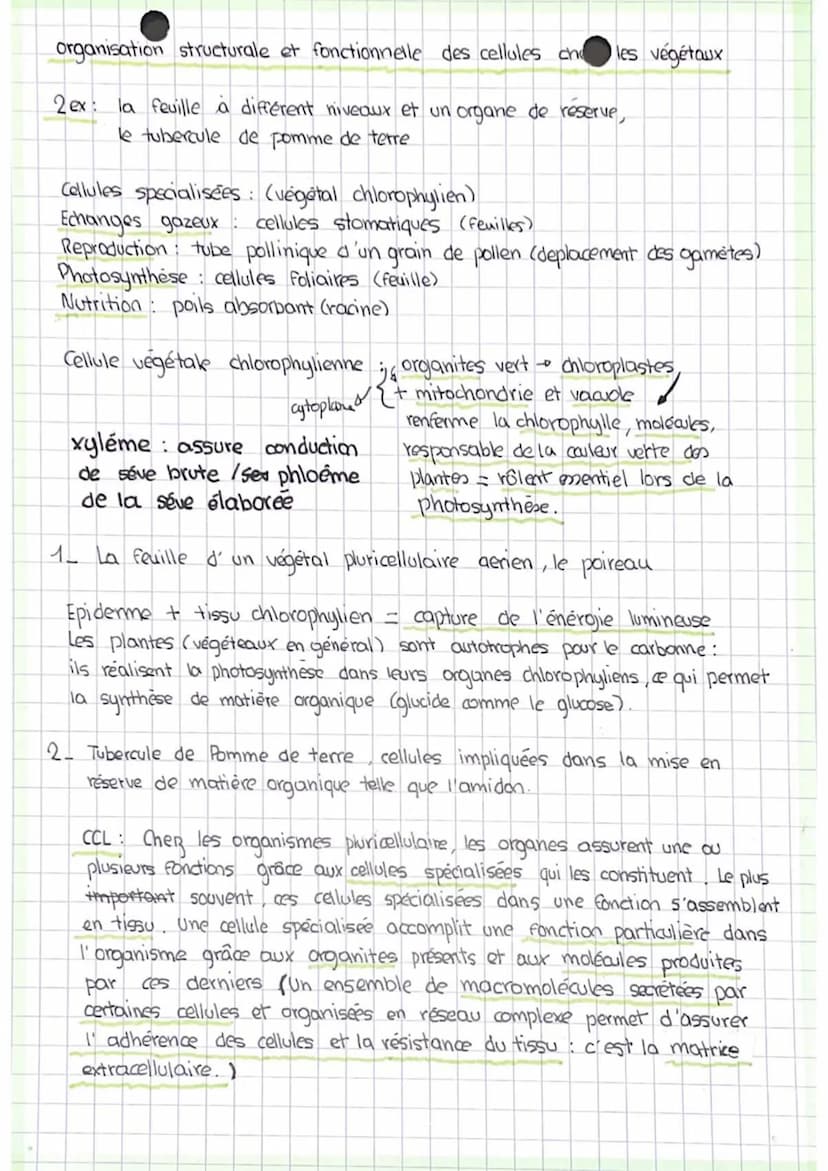 organisation structurale et fonctionnelle des cellules che les végétaux
2 ex : la feuille à différent niveaux et un organe de réserve,
le tubercule de pomme de terre
Cellules specialisées : (végétal chlorophylien)
Echanges gazeux : cellules stomatiques (feuilles)
Reproduction : tube pollinique d'un grain de pollen (deplacement des gamètes)
Photosynthèse : cellules foliaires (feuille)
Nutrition : poils absorbant (racine)
Cellule végétale chlorophylienne : organites vert → chloroplastes,
cytoplasme { + mitochondrie et vacuole
renferme la chlorophylle, molécules,
responsable de la couleur verte des
plantes = rôlent essentiel lors de la
photosynthèse.
xyléme : assure conduction
de séve brute / phloéme
de la séve élaborée
1_ La feuille d'un végétal pluricellulaire aerien, le poireau
Epiderme + tissu chlorophylien = capture de l'énérgie lumineuse
Les plantes (végéteaux en général) sont autotrophes pour le carbonne :
ils réalisent la photosynthèse dans leurs organes chlorophyliens, ce qui permet
la synthèse de matière organique (glucide comme le glucose).
2_ Tubercule de Pomme de terre, cellules impliquées dans la mise en
réserve de matière organique telle que l'amidon.
CCL : Chez les organismes pluricellulaire, les organes assurent une ou
plusieurs fonctions grâce aux cellules spécialisées qui les constituent. Le plus
important souvent, ces cellules spécialisées dans une fonction s'assemblent
en tissu. Une cellule spécialisée accomplit une fonction particulière dans
l'organisme grâce aux organites présents et aux molécules produites
par ces derniers (Un ensemble de macromolécules secrétées par
certaines cellules et organisées en réseau complexe permet d'assurer
l'adhérence des cellules et la résistance du tissu : c'est la matrice
extracellulaire.)